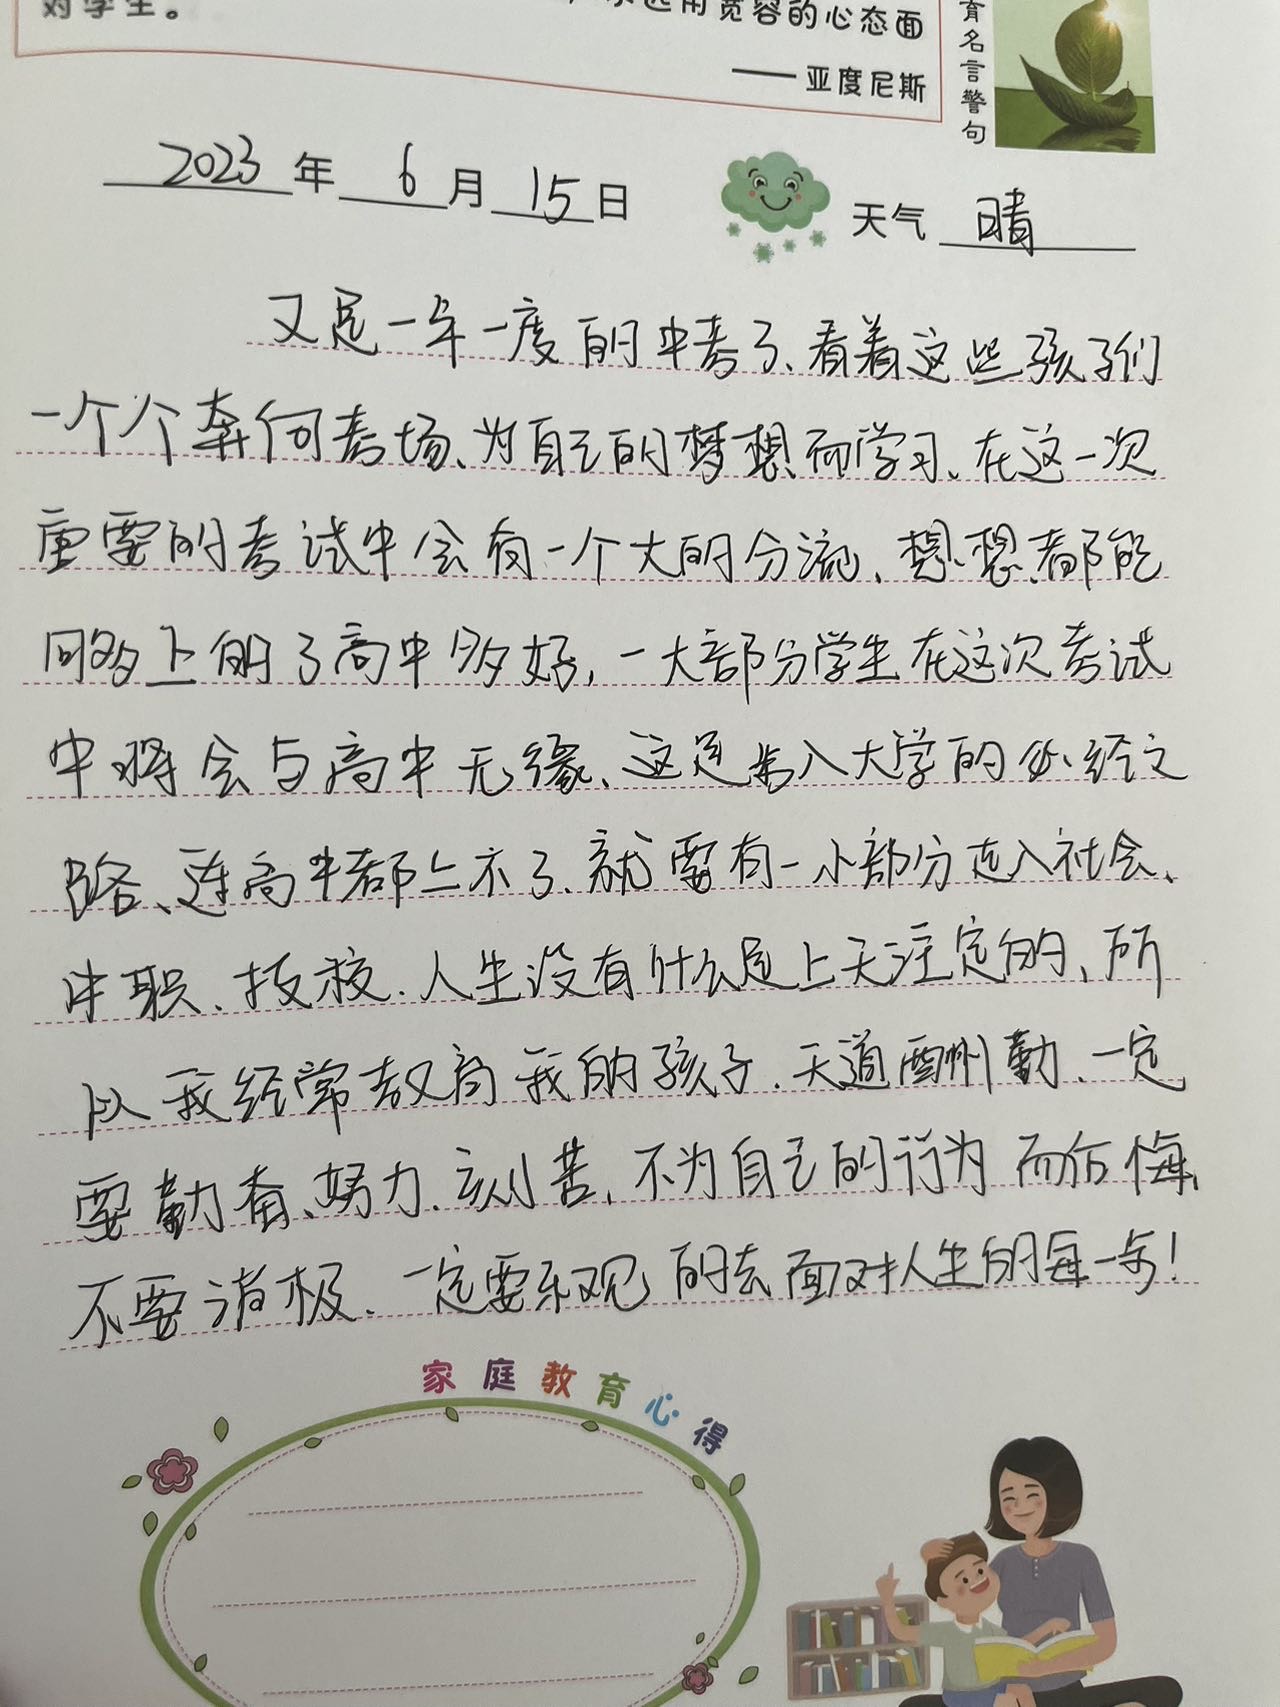 对学生。
永远用宽容的心态面
——亚度尼斯
育名言警句
2023年6月15日
天气 晴
又是一年一度的中考了、看着这些孩子们
一个个奔向考场、为自己的梦想而学习、在这一次
重要的考试中会有一个大的分流、想想都能
够上的了高中多好,一大部分学生在这次考试
中将会与高中无缘、这是步入大学的必经之
路、连高中都上不了、就要有一小部分走入社会、
中职、技校、人生没有什么是上天注定的、所
以我经常教育我的孩子、天道酬勤、一定
要勤奋、努力、刻苦,不为自己的行为而后悔、
不要消极、一定要乐观的去面对人生的每一步!
家庭教育心得